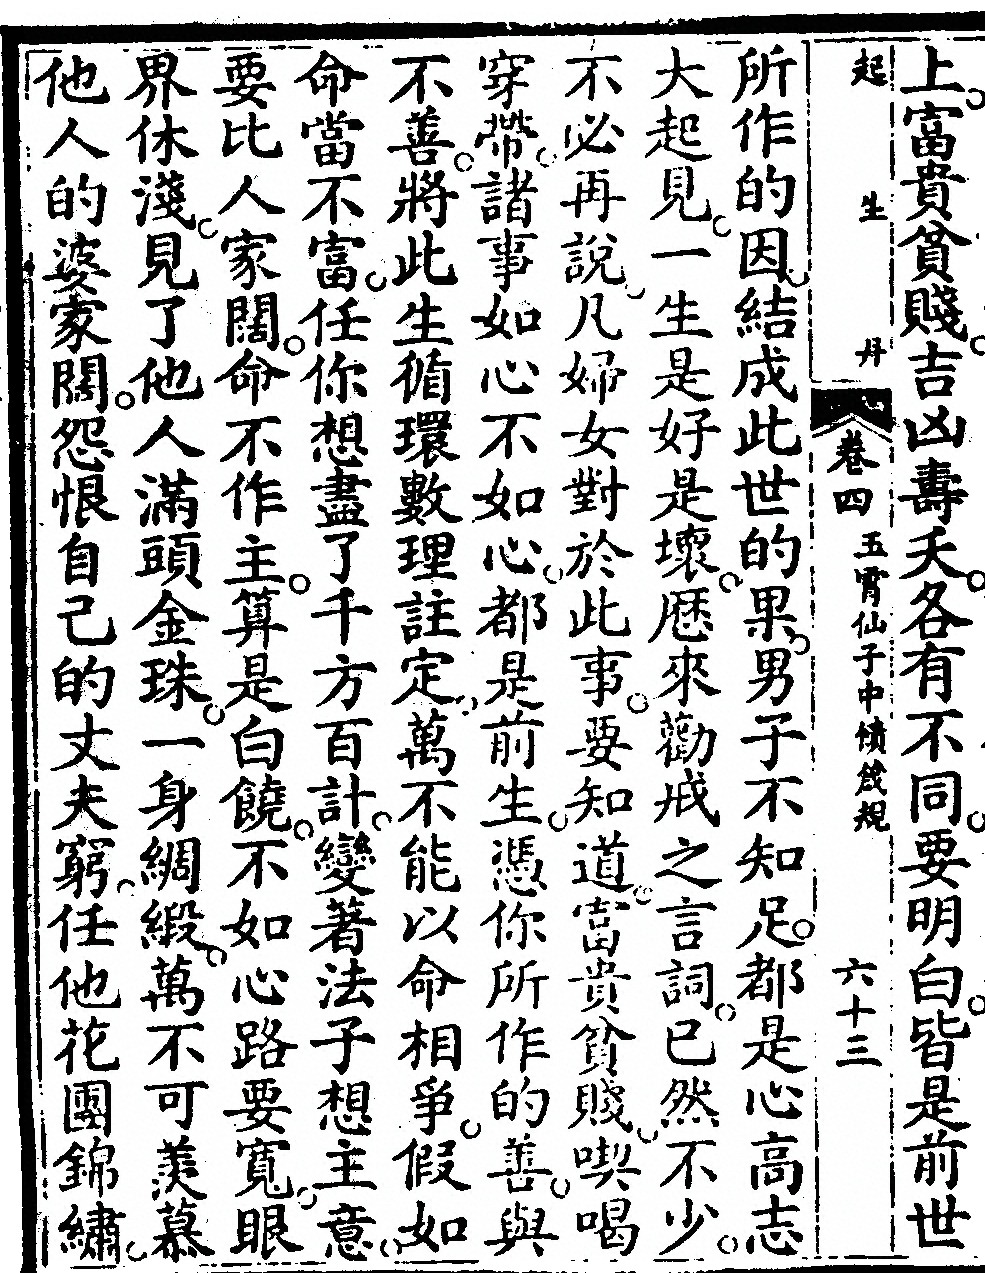 上。富貴貧賤。吉凶壽夭。各有不同。要明白。皆是前世
起生丹 卷四 五霄仙子中憤啟規 六十三
所作的因。結成此世的果。男子不知足。都是心高志
大起見。一生是好是壞。歷來勸戒之言詞。已然不少。
不必再說。凡婦女對於此事。要知道。富貴貧賤。喫喝
穿帶。諸事如心不如心。都是前生。憑你所作的善。與
不善。將此生循環數理註定。萬不能以命相爭。假如
命當不富。任你想盡了千方百計。變著法子想主意。
要比人家闊。命不作主。算是白饒。不如心路要寬。眼
界休淺。見了他人滿頭金珠。一身綢緞。萬不可羨慕
他人的婆家闊。怨恨自己的丈夫窮。任他花團錦繡。